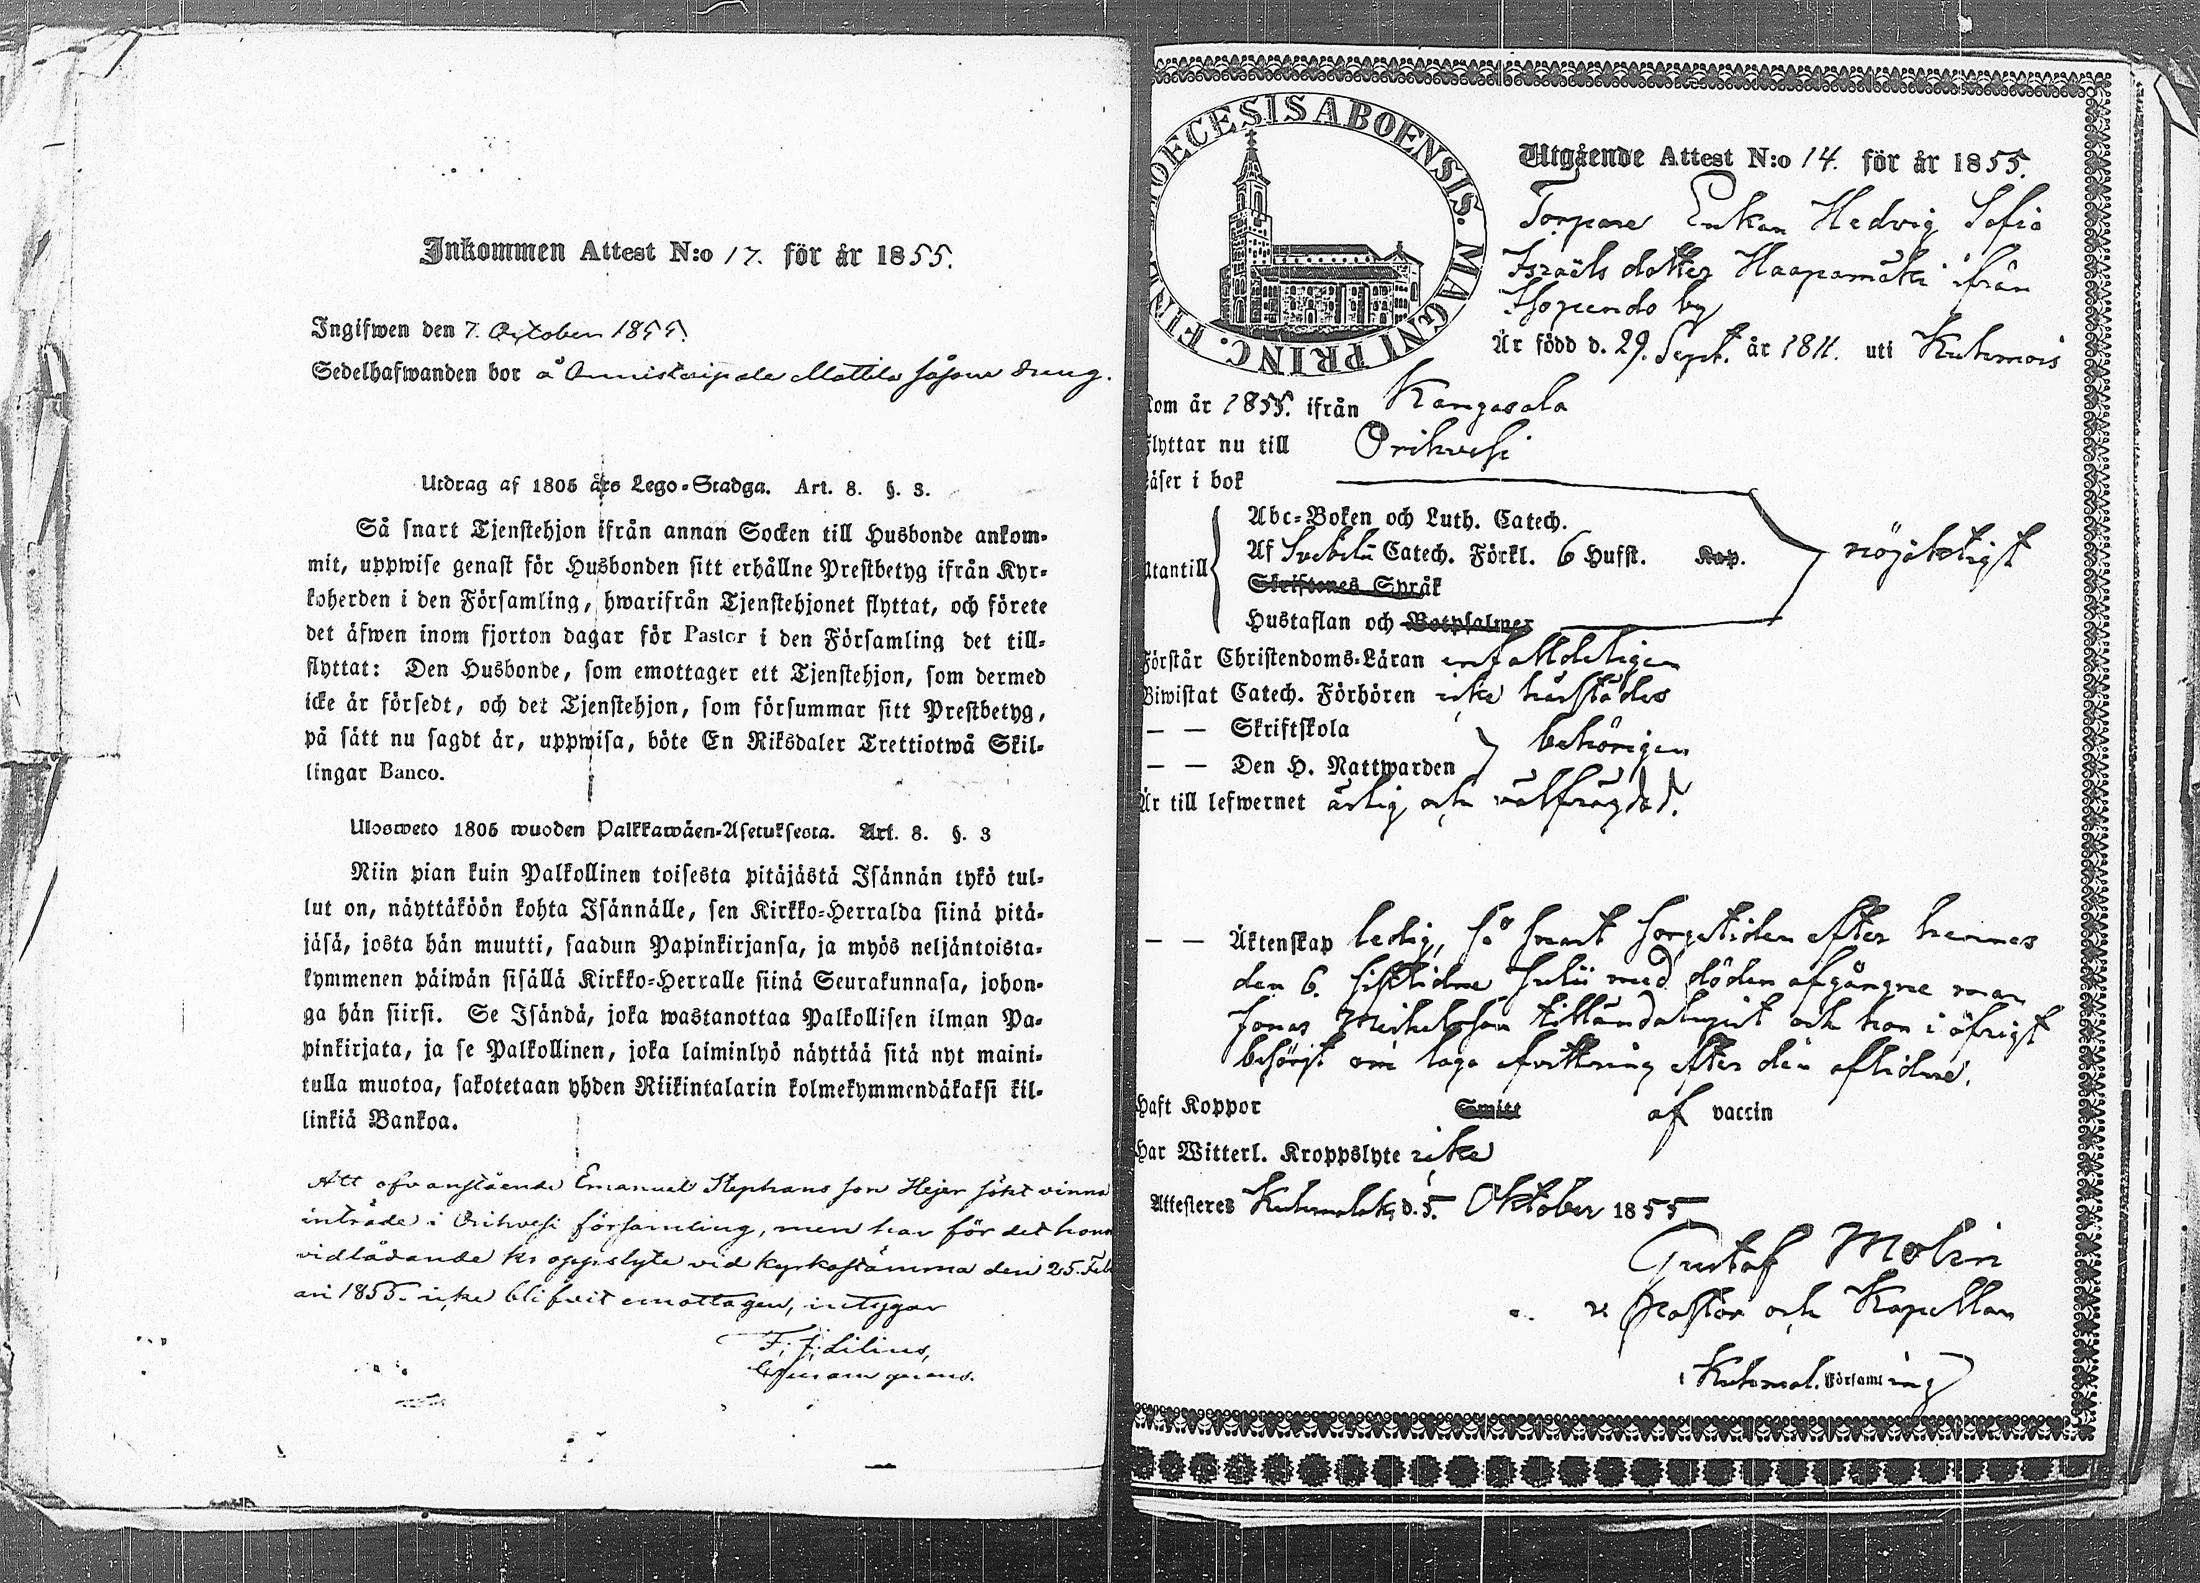 Inkommen Attest N:o 17. för år 1855.
Ingifwen den 7. October 1855.
Sedelhafwanden bor å Mattila såsom dreng.
Utdrag af 1805 års Lego-Stadga. Art. 8. §. 3.
Så snart Tjenstehjon ifrån annan Socken till Husbonde ankom-
mit, uppwise genast för Husbonden sitt erhållne Prestbetyg ifrån Kyr-
koherden i den Församling, hwarifrån Tjenstehjonet flyttat, och förete
det äfwen inom fjorton dagar för Pastor i den Församling det till-
flyttat: Den Husbonde, som emottager ett Tjenstehjon, som dermed
icke är försedt, och det Tjenstehjon, som försummar sitt Prestbetyg,
på sätt nu sagdt är, uppwisa, böte En Riksdaler Trettiotwå Skil-
lingar Banco.
Ulosweto 1805 wuoden Palkkawäen-Asetuksesta. Art. 8. §. 3
Niin pian kuin Palkollinen toisesta pitäjästä Isännän tykö tul-
lut on, näyttäköön kohta Isännälle, sen Kirkko-Herralda siinä pitä-
jäsä, josta hän muutti, saadun Papinkirjansa, ja myös neljäntoista-
kymmenen päiwän sisällä Kirkko-Herralle siinä Seurakunnasa, johon-
ga hän siirsi. Se Isändä, joka wastanottaa Palkollisen ilman Pa-
pinkirjata, ja se Palkollinen, joka laiminlyö näyttää sitä nyt maini-
tulla muotoa, sakotetaan yhden Riikintalarin kolmekymmendäkaksi kil-
linkiä Bankoa.
Att ofvanstående Emanuel Stephansson Hejer sökt vinna
inträde i Orihvesi församling, men har för det honom
vidlådande kroppslyte vid kyrkostämma den 25. Febr
ari 1855. icke blifvit emottagen, intygar
F. J. Lilius,
DIOECESIS ABOENSIS. MAGNI PRINC. FINL.
Utgående Attest N:o 14. för år 1855.
Torpare Enkan Hedvig Sofia
Israëls dotter Haapamäki ifrån
by
Är född d. 29. Sept. år 1811. uti Kuhmois
Kom år 1855. ifrån Kangasala
Flyttar nu till Orihvesi
Läser i bok
Utantill
Abc-Boken och Luth. Catech.
Af Svebelii Catech. Förkl. 6 Hufst. Kap.
Skriftenes Språk
Hustaflan och Botpsalmer
nöjaktigt
Förstår Christendoms-Läran enfalldeligen
Biwistat Catech. Förhören icke härstädes
— — Skriftskola
— — Den H. Nattwarden
behörigen
Är till lefwernet ärlig och välfrägdad.
— — Äktenskap ledig, så snart sorgetiden efter hennes
den 6. sistlidne Julii med döden afgångne man
Jonas Michelsson tilländalupit och hon i öfrigt
behörigt om laga afvittring efter den aflidne.
Haft Koppor Smitt af vaccin
Har Witterl. Kroppslyte icke
Attesteres Kuhmalaks d. 5. Oktober 1855
Gustaf Molin
v Pastor och Kapellan
i Kuhmal. Församling